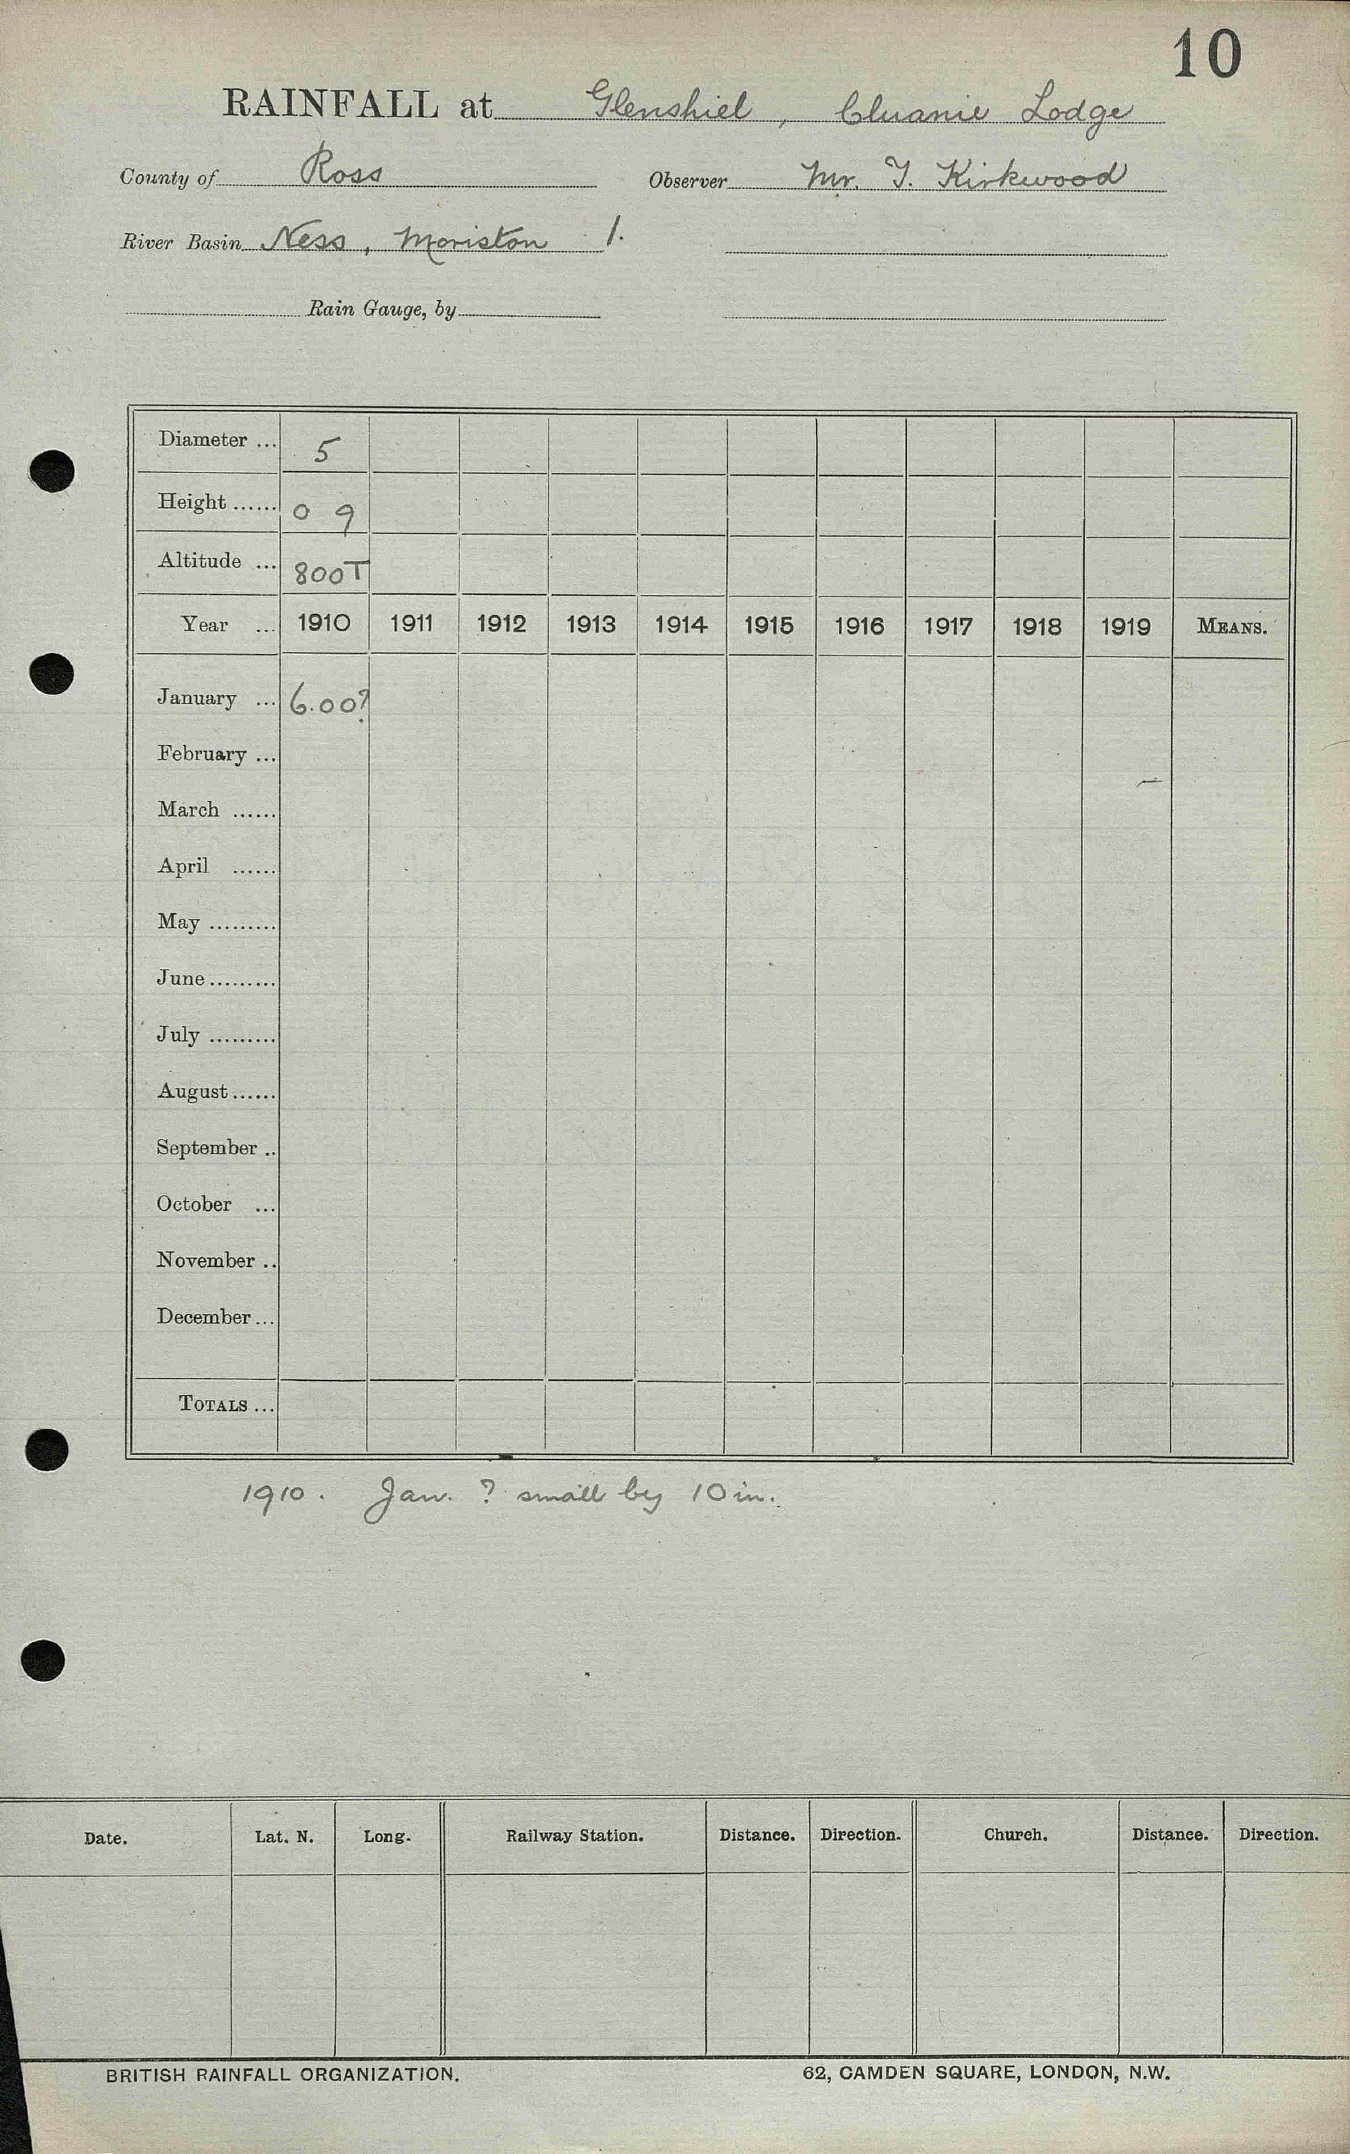 10
RAINFALL at Glenshiel, Cluanie Lodge
County of Ross Observer Mr. T. Kirkwood
River Basin Ness, Moriston 1.
Rain Gauge, by
Diameter ... 5
Height ...... 0 9
Altitude ... 800T
Year ... 1910 1911 1912 1913 1914 1915 1916 1917 1918 1919 MEANS.
January ... 6.00?
February ...
March ......
April ......
May .........
June .........
July .........
August ......
September ..
October ...
November ..
December ...
TOTALS ...
1910. Jan. ? small by 10 in.
Date. Lat. N. Long. Railway Station. Distance. Direction. Church. Distance. Direction.
BRITISH RAINFALL ORGANIZATION. 62, CAMDEN SQUARE, LONDON, N.W.